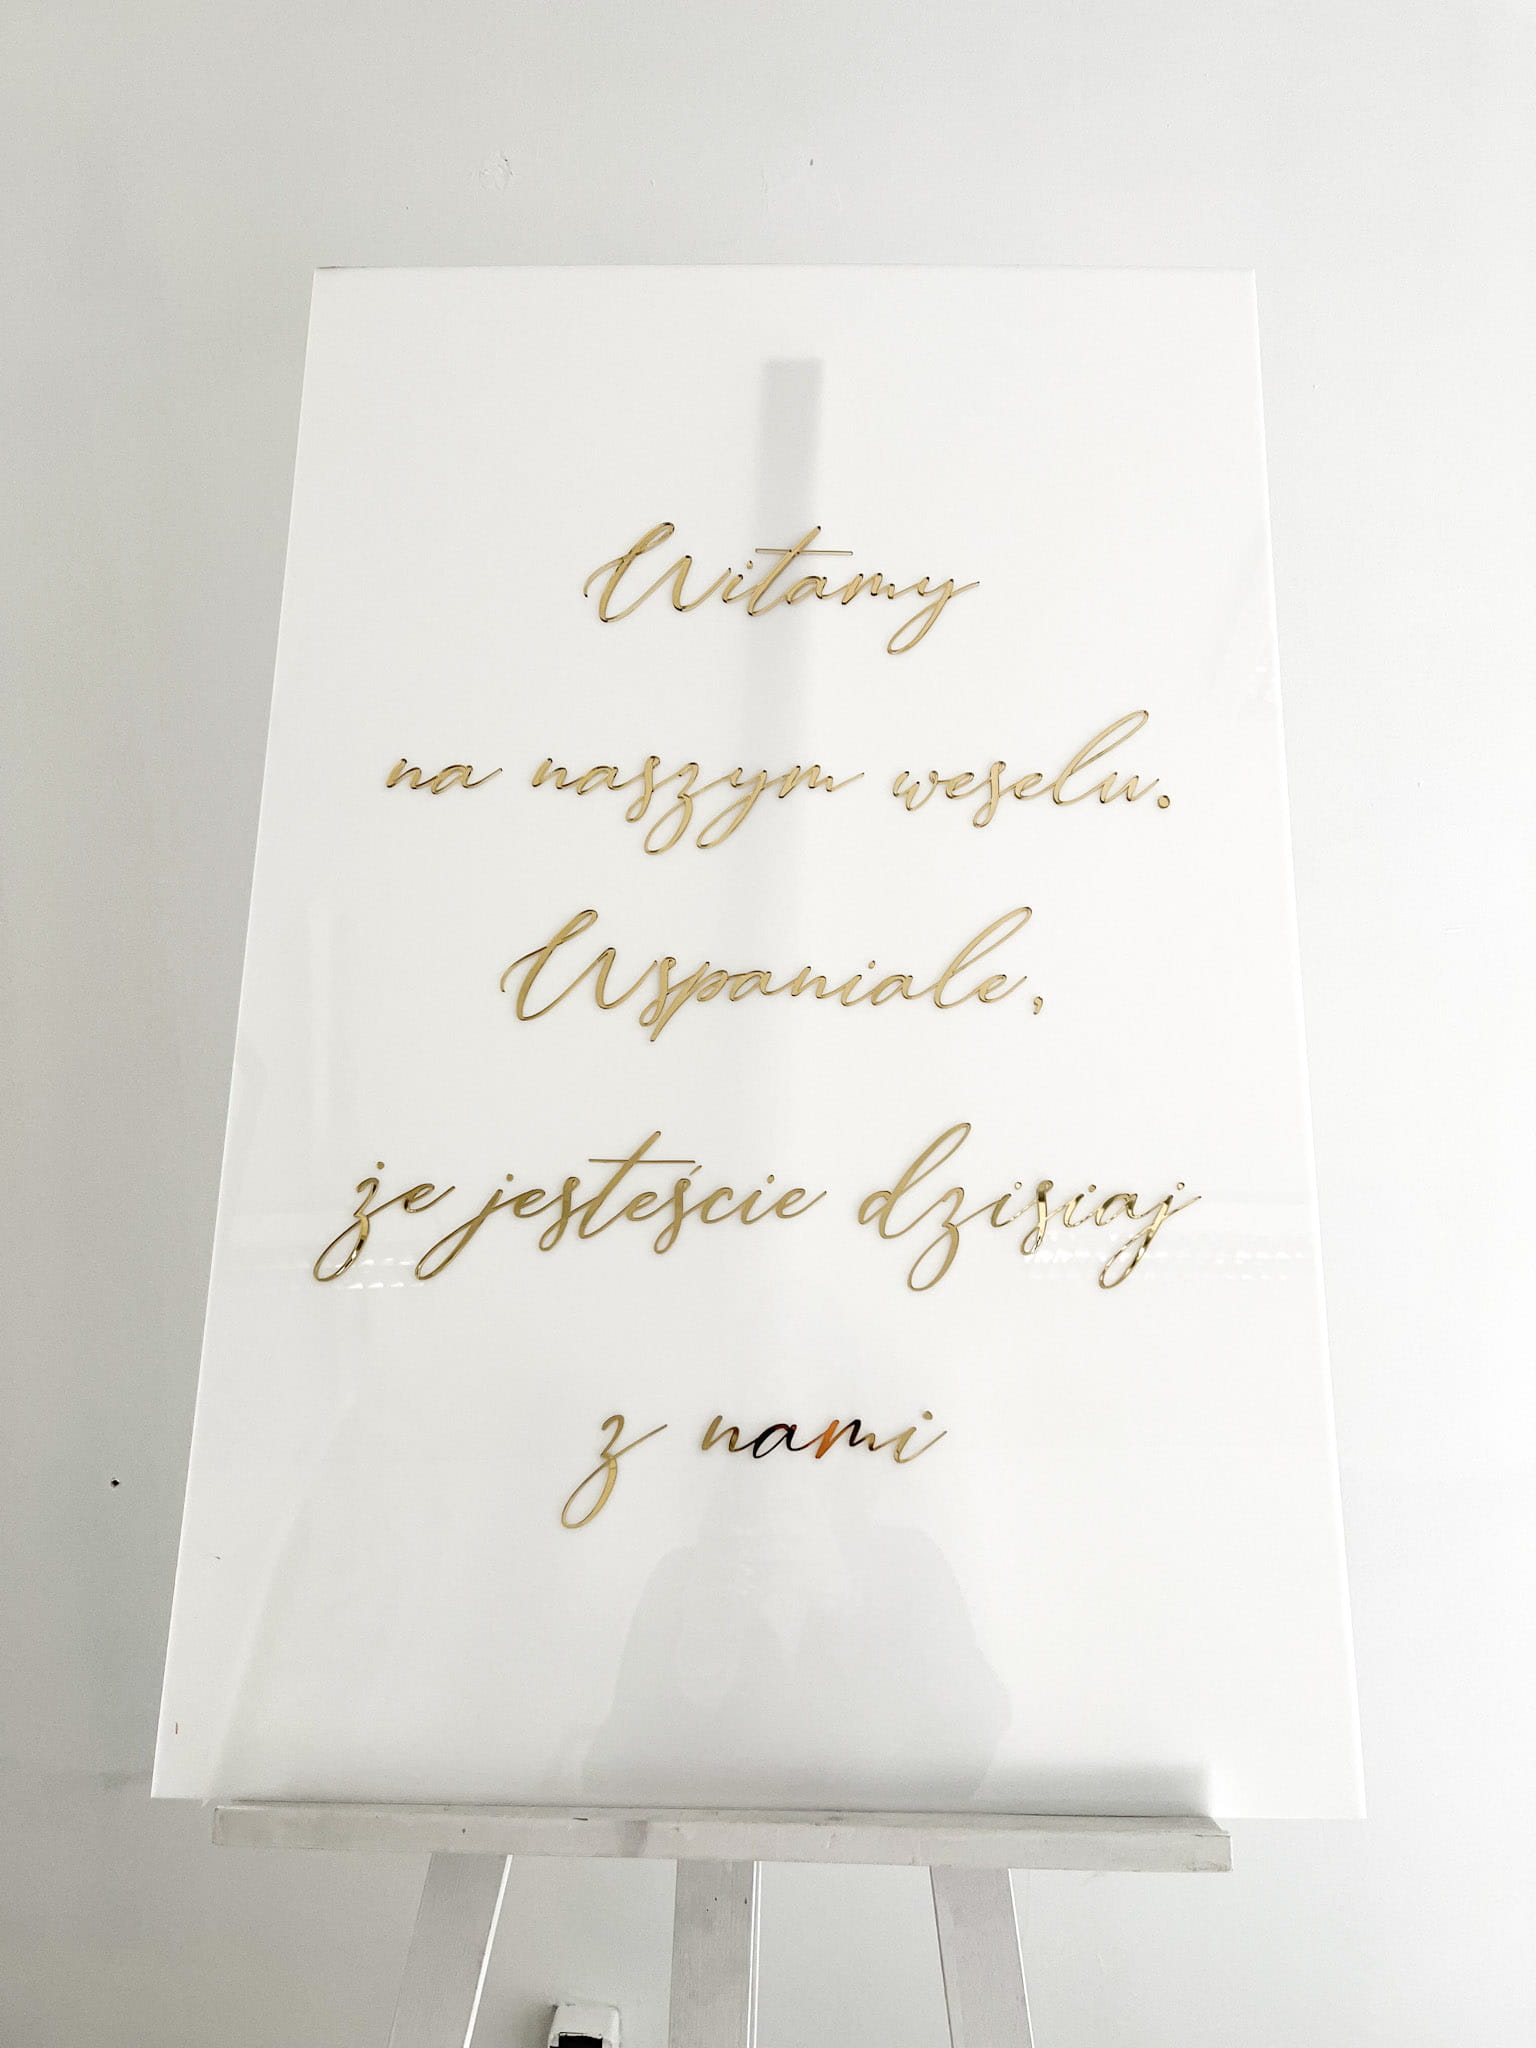 Witamy
na naszym weselu.
Wspaniale,
że jesteście dzisiaj
z nami